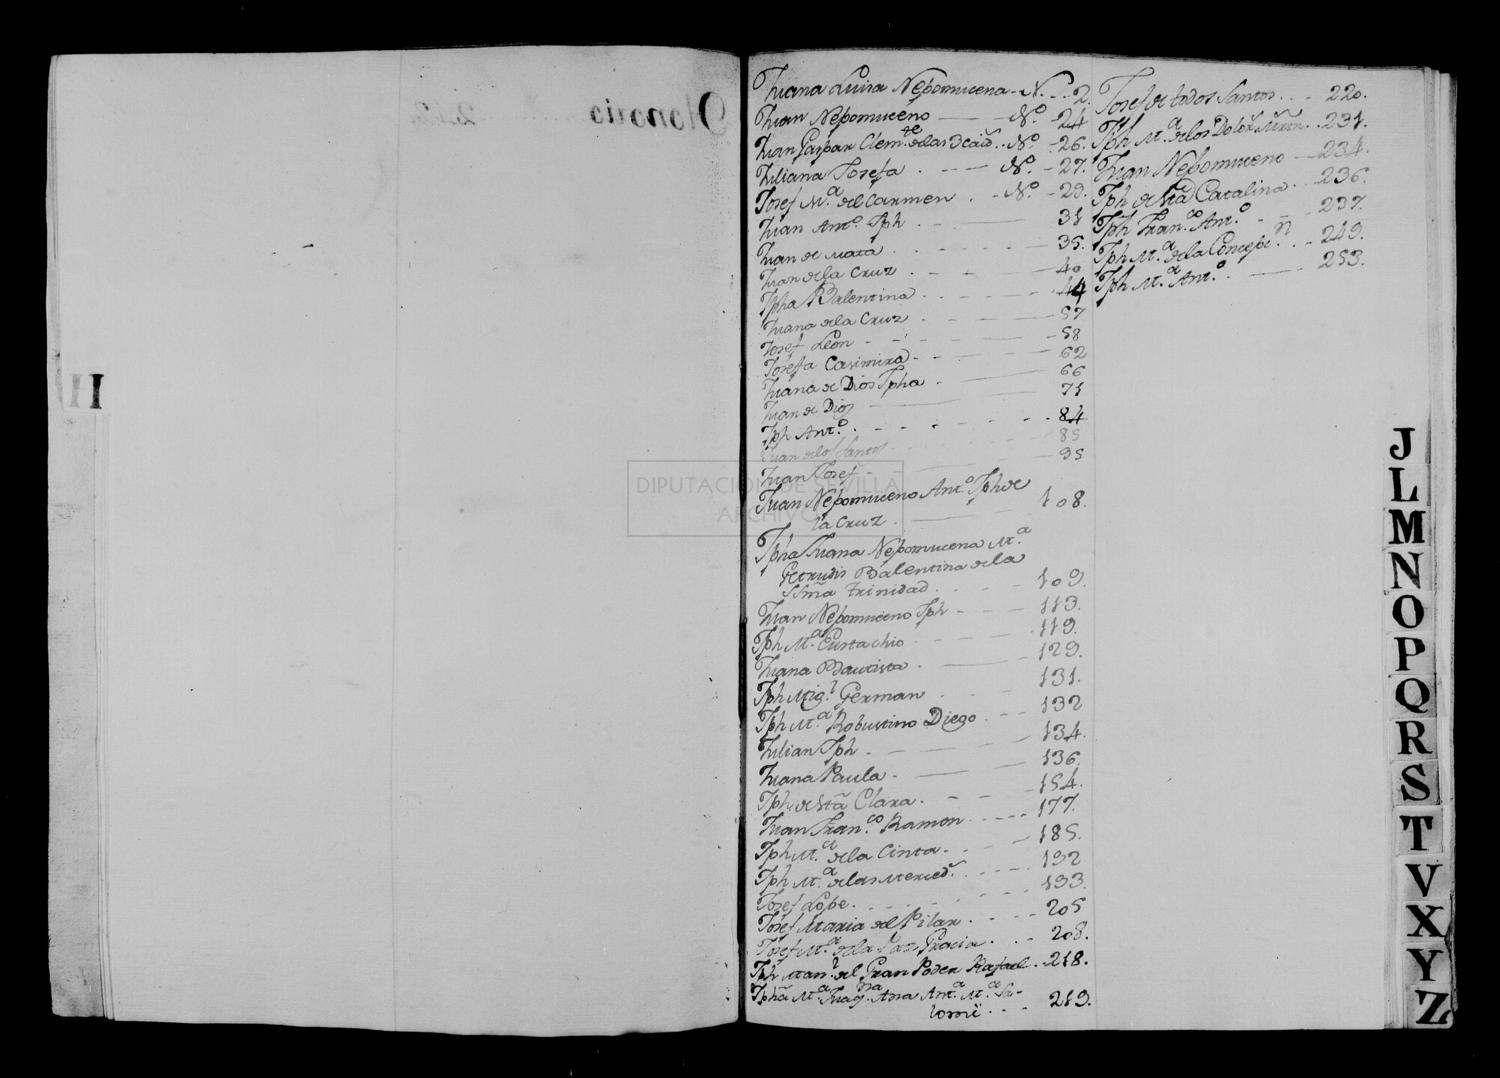 H
Juana Luisa Nepomucena - N. - 2.
Juan Nepomuceno - Nº - 24
Juan Gaspar Clem.te de las - Nº - 26.
Juliana Josefa - Nº - 27.
Josef M.a del Carmen - Nº - 29.
Juan Ant.o Jph 31
Juan de Mata 35.
Juan de la Cruz 40
Jpha Balentina 44
Juana de la Cruz 57
Josef Leon 58
Josefa Casimira 62
Juana de Dios Jpha 66
Juan de Dios 71
Jph Ant.o 84
Juan de los Santos 85
Juan Josef 95
Juan Nepomuceno Ant.o Jph de
la Cruz 108.
Jpha Juana Nepomucena M.a
Getrudis Balentina de la
SSma Trinidad 109.
Juan Nepomuceno Jph 113.
Jph M.a Eustachio 119.
Juana Bautista 129.
Jph Mig.l German 131.
Jph M.a Robustino Diego 132
Julian Jph 134.
Juana Paula 136.
Jph de Sta Clara 154.
Juan Fran.co Ramon 177.
Jph M.a de la Cinta 185.
Jph M.a de las Merced.s 192
Josef Lope 193.
Josef Maria del Pilar 205
Josef M.a de la Paz Gracia 208.
Jph Man.l del Gran Poder Rafael 218.
Jpha M.a Mag.na Ana Ant.a M.a Sa-
lomé 219.
Josef de todos Santos 220.
Jph M.a de los Dolor.s 231.
Juan Nepomuceno 234.
Jph de Sta Catalina 236.
Jph Fran.co Ant.o 237.
Jph M.a de la Concepc.n 249.
Jph M.a Ant.o 253.
J
L
M
N
O
P
Q
R
S
T
V
X
Y
Z
DIPUTACION DE SEVILLA
ARCHIVO